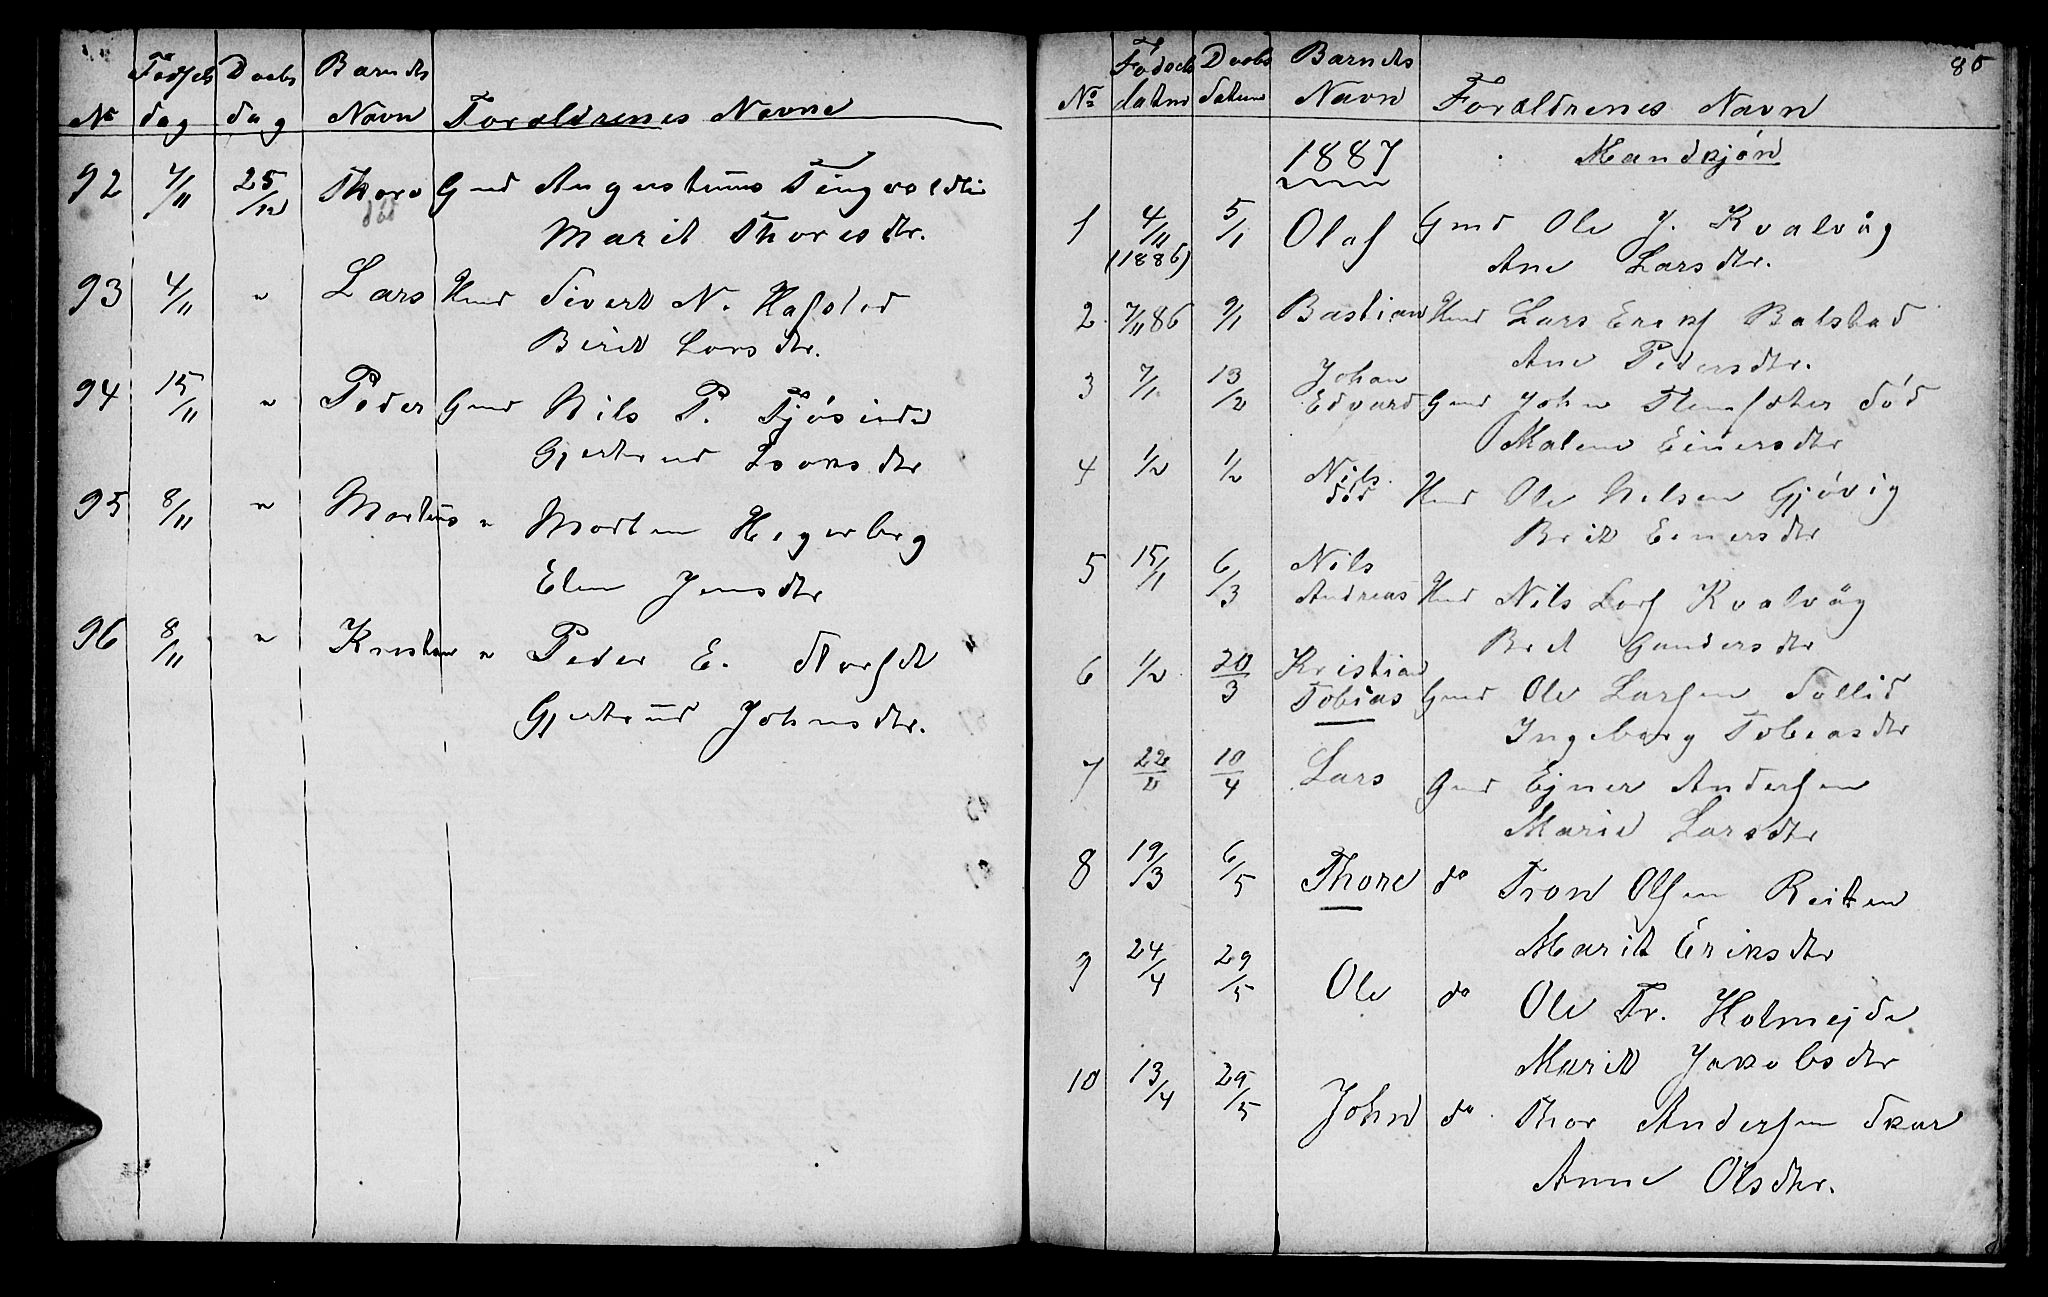 Fødsels Daabs Barnets
No dag dag Navn Forældrenes Navne
92 7/11 25/12 Thore Gmd Augustinus Tingvoldlie
død Marit Thoresdtr.
93 4/11 " Lars Hmd Sivert N. Hafsted
Berit Larsdtr.
94 15/11 " Peder Gmd Nils P. Tjøsinde
Gjertrud Isaksdtr
95 8/11 " Martinus " Morten Hegerberg
Elen Jensdtr
96 8/11 " Kristian " Peder E.
Gjertrud Johnsdtr.
80
Fødsels Daabs Barnets
No datum datum Navn Forældrenes Navn
1887 Mandkjøn
1 4/11 5/1 Olaf Gmd Ole J. Kvalvåg
(1886) Ane Larsdtr.
2 7/11 86 9/1 Bastian Hmd Lars Eriks Botstad
Ane Pedersdtr.
3 7/1 13/2 Johan
Edvard Gmd John død
Malene Einersdtr
4 1/2 1/2 Nils
død Hmd Ole Nelsen Gjøvig
Brit Einersdtr
5 15/1 6/3 Nils
Andreas Hmd Nils Lars Kvalvåg
Brit Gundersdtr
6 1/2 20/3 Kristian
Tobias Gmd Ole Larsen Sollid
Ingeborg Tobiasdtr
7 22/2 10/4 Lars Gmd Ejner Andersen
Marie Larsdtr
8 19/3 6/5 Thore do Tron Olsen Reiten
Marit Eriksdtr
9 24/4 29/5 Ole do Ole Tr. Holmejde
Marit Jakobsdtr
10 13/4 29/5 John do Thor Andersen Skar
Anne Olsdtr.